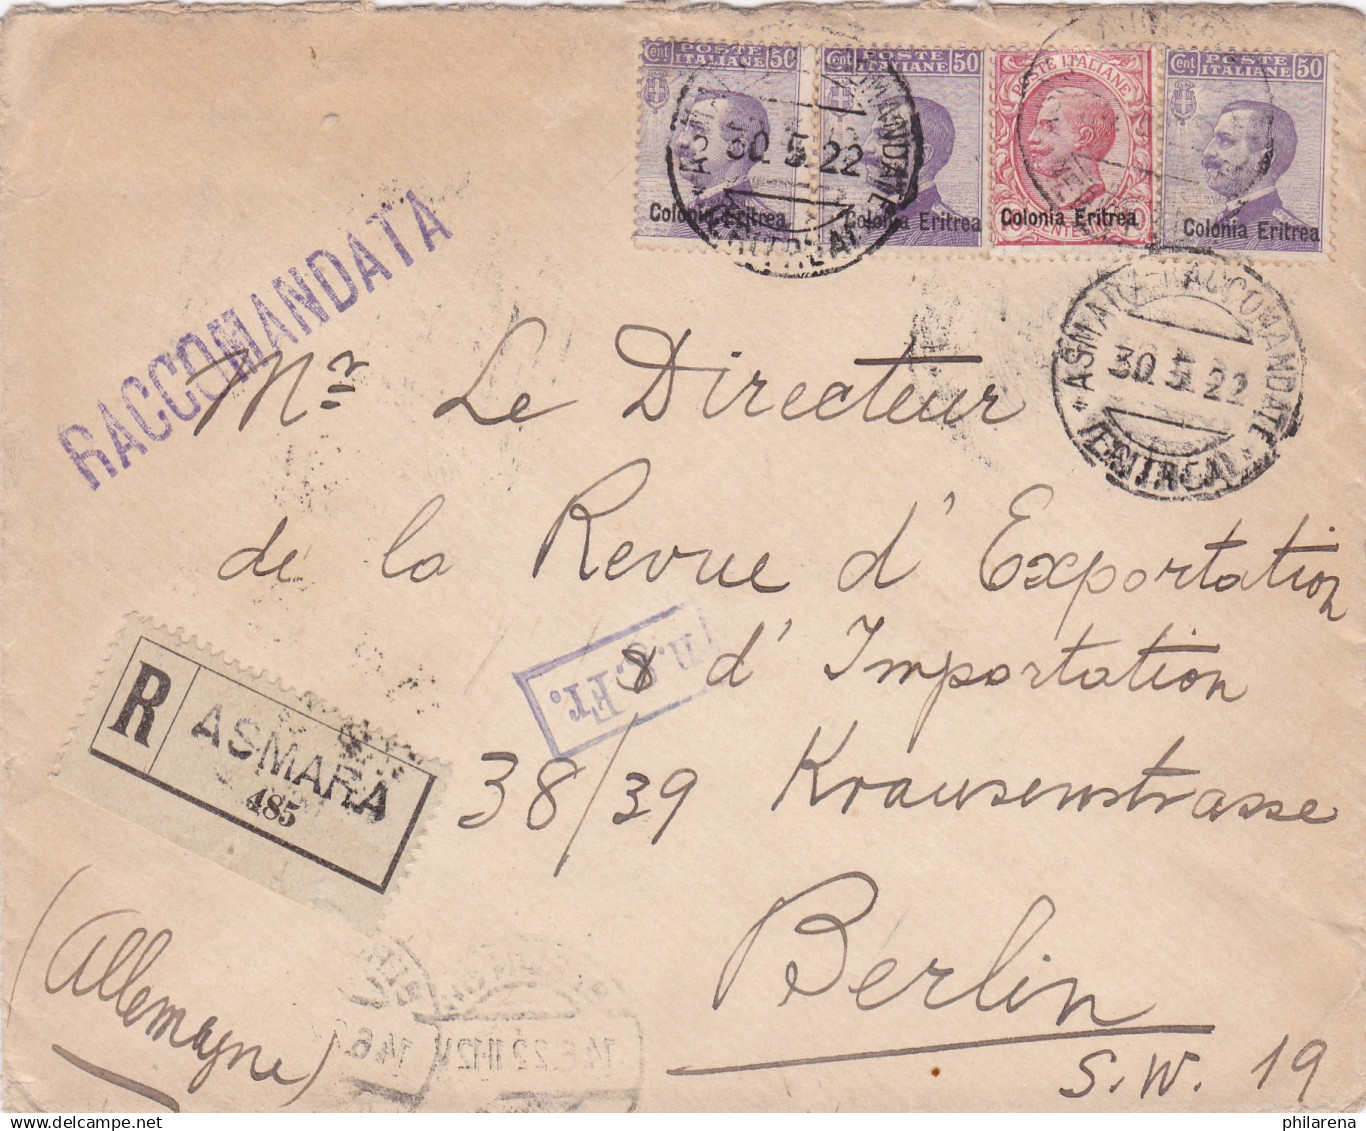 Cent POSTE ITALIANE 50
Colonia Eritrea
Cent POSTE ITALIANE 50
Colonia Eritrea
POSTE ITALIANE
Colonia Eritrea
Cent POSTE ITALIANE 50
Colonia Eritrea
30.5.22
(ERITREA)
ASMARA RACCOMANDATE
30.5.22
(ERITREA)
RACCOMANDATA
Mr Le Directeur
de la Revue d'Exportation
& d'Importation
38/39 Krausenstrasse
Berlin
S.W. 19
Fr.
R ASMARA
485
(Allemagne)
14.6.22 11-12V
philarena.com